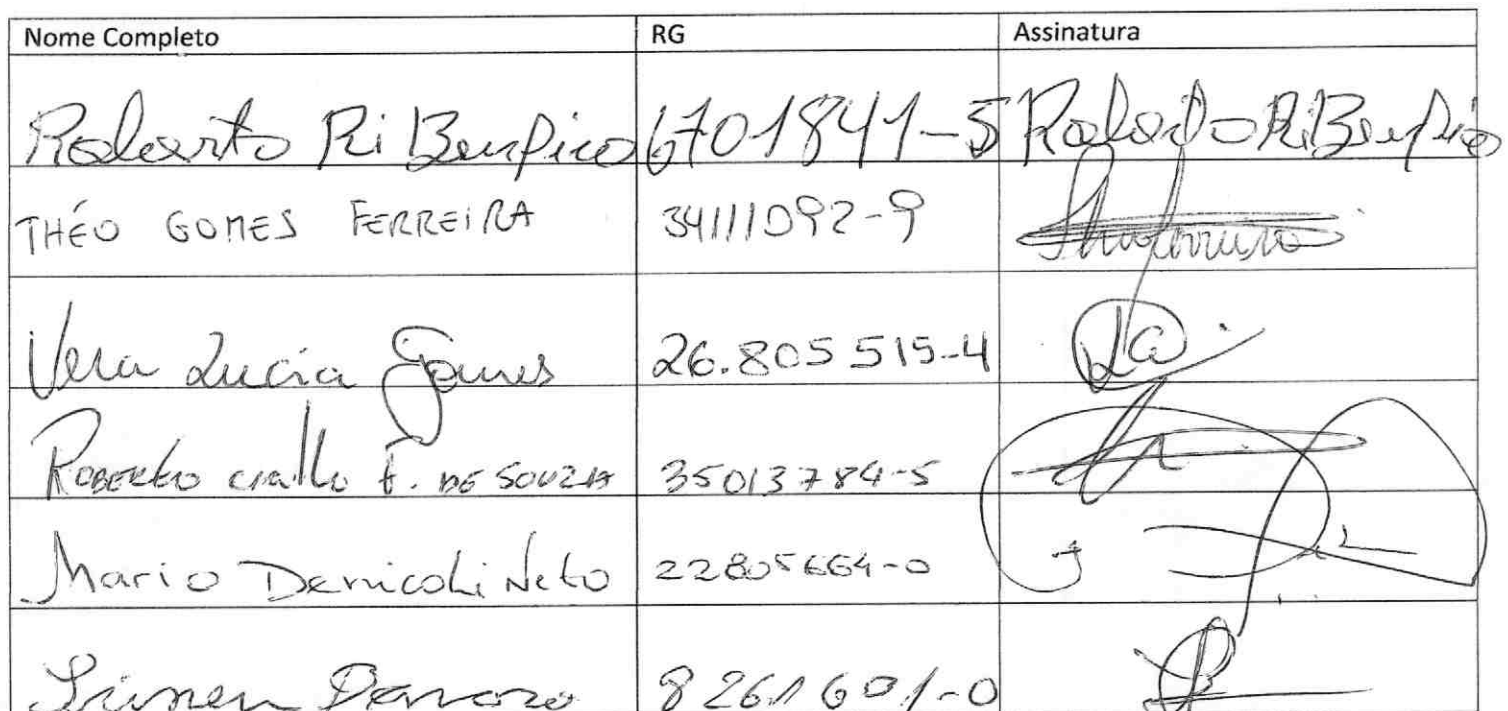 Nome Completo RG Assinatura
Roberto Ri Benfica 6701841-5 Roberto Ri Benfica
THÉO GOMES FERREIRA 34111092-9
Vera Lucia Gomes 26.805515-4
ROBERTO F. DE SOUZA 35013784-5
Mario Denicoli Neto 22805664-0
8261601-0